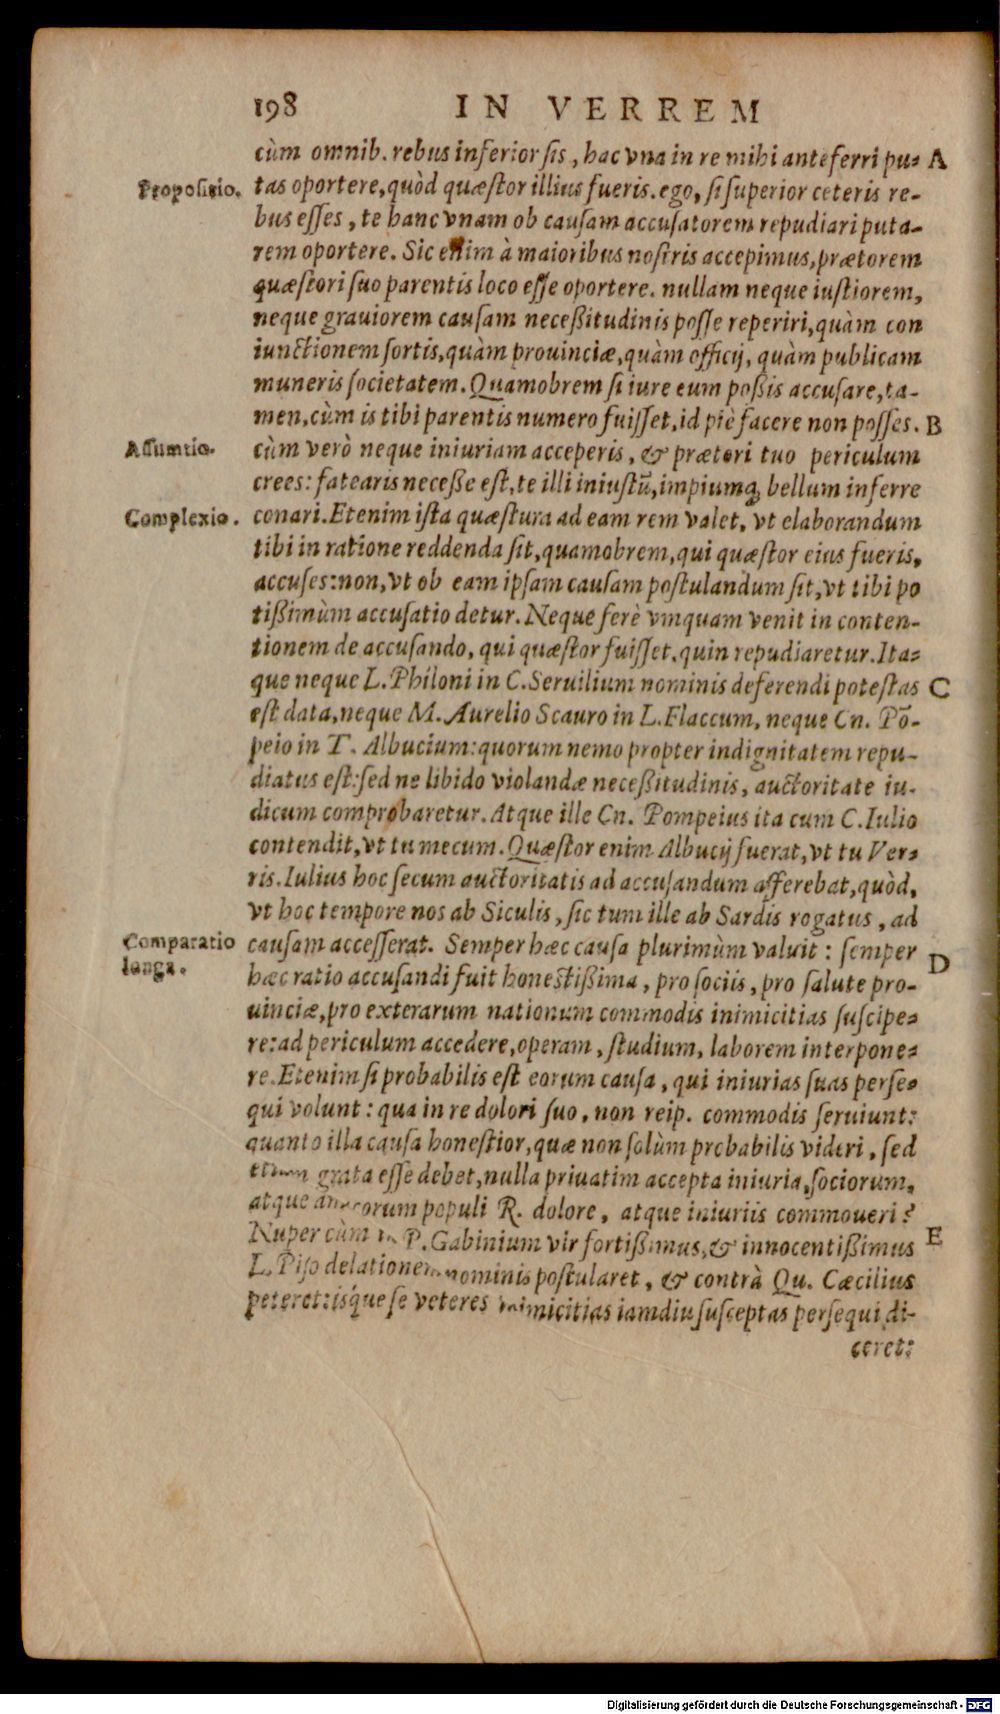 198 IN VERREM
cùm omnib. rebus inferior sis, hac vna in re mihi anteferri pu- A
Propositio. tas oportere, quòd quæstor illius fueris. ego, si superior ceteris re-
bus esses, te hanc vnam ob causam accusatorem repudiari puta-
rem oportere. Sic enim à maioribus nostris accepimus, prætorem
quæstori suo parentis loco esse oportere. nullam neque iustiorem,
neque grauiorem causam necessitudinis posse reperiri, quàm con
iunctionem sortis, quàm prouinciæ, quàm officij, quàm publicam
muneris societatem. Quamobrem si iure eum possis accusare, ta-
men, cùm is tibi parentis numero fuisset, id piè facere non posses. B
Assumtio. cùm verò neque iniuriam acceperis, & prætori tuo periculum
crees: fatearis necesse est, te illi iniustū, impiumq́; bellum inferre
Complexio. conari. Etenim ista quæstura ad eam rem valet, vt elaborandum
tibi in ratione reddenda sit, quamobrem, qui quæstor eius fueris,
accuses: non, vt ob eam ipsam causam postulandum sit, vt tibi po
tissimùm accusatio detur. Neque ferè vmquam venit in conten-
tionem de accusando, qui quæstor fuisset, quin repudiaretur. Ita-
que neque L. Philoni in C. Seruilium nominis deferendi potestas C
est data, neque M. Aurelio Scauro in L. Flaccum, neque Cn. Pō-
peio in T. Albucium: quorum nemo propter indignitatem repu-
diatus est: sed ne libido violandæ necessitudinis, auctoritate iu-
dicum comprobaretur. Atque ille Cn. Pompeius ita cum C. Iulio
contendit, vt tu mecum. Quæstor enim Albucij fuerat, vt tu Ver-
ris. Iulius hoc secum auctoritatis ad accusandum afferebat, quòd,
vt hoc tempore nos ab Siculis, sic tum ille ab Sardis rogatus, ad
Comparatio causam accesserat. Semper hæc causa plurimùm valuit: semper
longa. hæc ratio accusandi fuit honestissima, pro sociis, pro salute pro- D
uinciæ, pro exterarum nationum commodis inimicitias suscipe-
re: ad periculum accedere, operam, studium, laborem interpone-
re. Etenim si probabilis est eorum causa, qui iniurias suas perse-
qui volunt: qua in re dolori suo, non reip. commodis seruiunt:
quanto illa causa honestior, quæ non solùm probabilis videri, sed
etiam grata esse debet, nulla priuatim accepta iniuria, sociorum,
atque amicorum populi R. dolore, atque iniuriis commoueri?
Nuper cùm in P. Gabinium vir fortissimus, & innocentissimus E
L. Piso delationem nominis postularet, & contrà Qu. Cæcilius
peteret: isq́ue se veteres inimicitias iamdiu susceptas persequi di-
ceret:
Digitalisierung gefördert durch die Deutsche Forschungsgemeinschaft - DFG